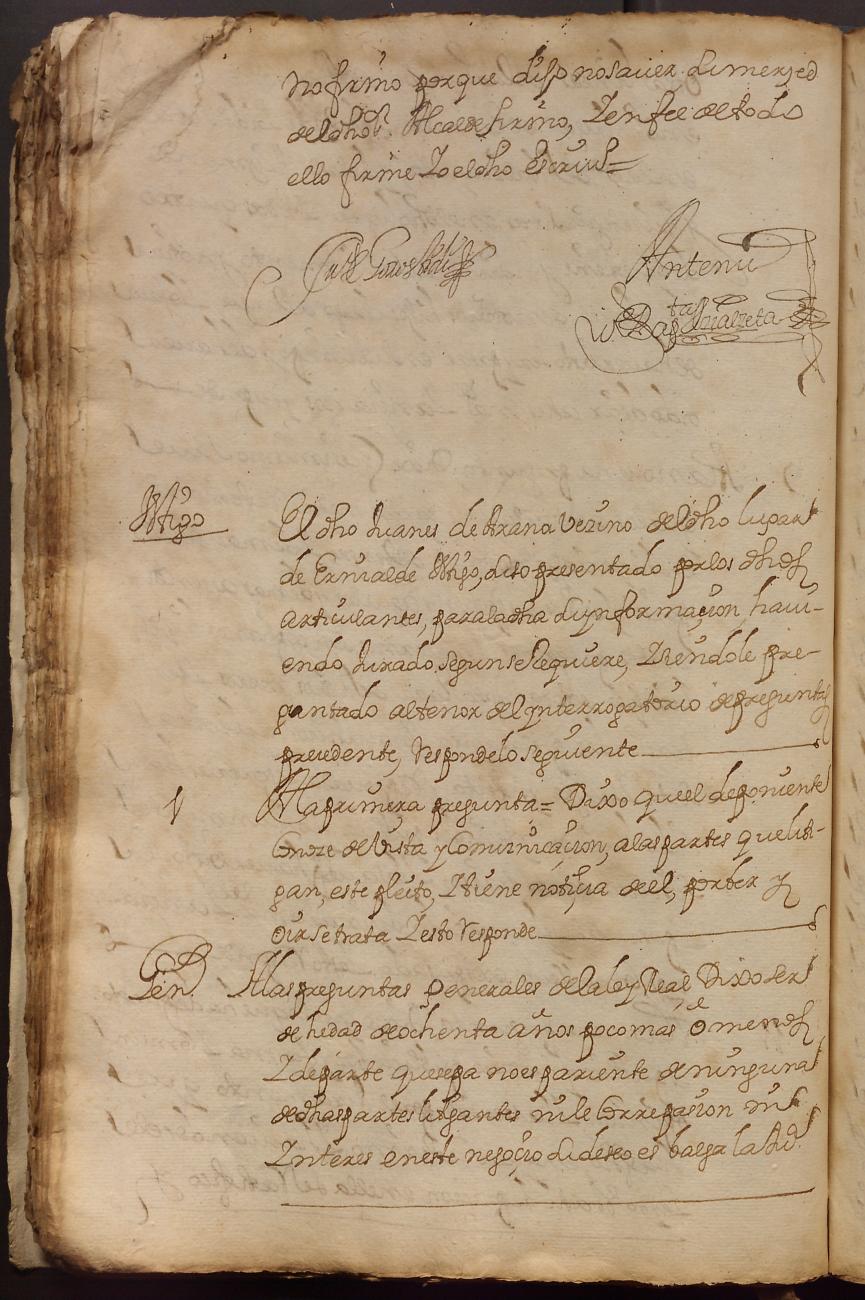 no firmo porque dijo no saver su merçed
del dho Sr Alcalde firmo, Y en fee de todo
ello firme Yo el dho Escriuº=
Ante mi
Bapta
Ttigo
El dho Juanes de Arana Vezino del dho lugar
de Ernialde ttigo, suso presentado por los dhos
articulantes, para la dha su ynformaçion, haui-
endo Jurado segun se Requiere, Y siendole pre-
guntado al tenor del ynterrogatorio de preguntas
precedente, Responde lo seguiente
1
A la primera pregunta= Dixo que el deponiente
Conoze de Vista y Comunicaçion, a las partes que liti-
gan, este pleito, Y tiene notiçia de el, por ber y
oir se trata Y esto Responde
Gen.
A las preguntas generales de la ley Real Dixo ser
de hedad de ochenta años poco mas o menos
Y de parte que sepa no es pariente de ninguna
de dhas partes litigantes ni le Corre pasion ni
Ynteres en este negoçio su deseo es balga la Jusª.